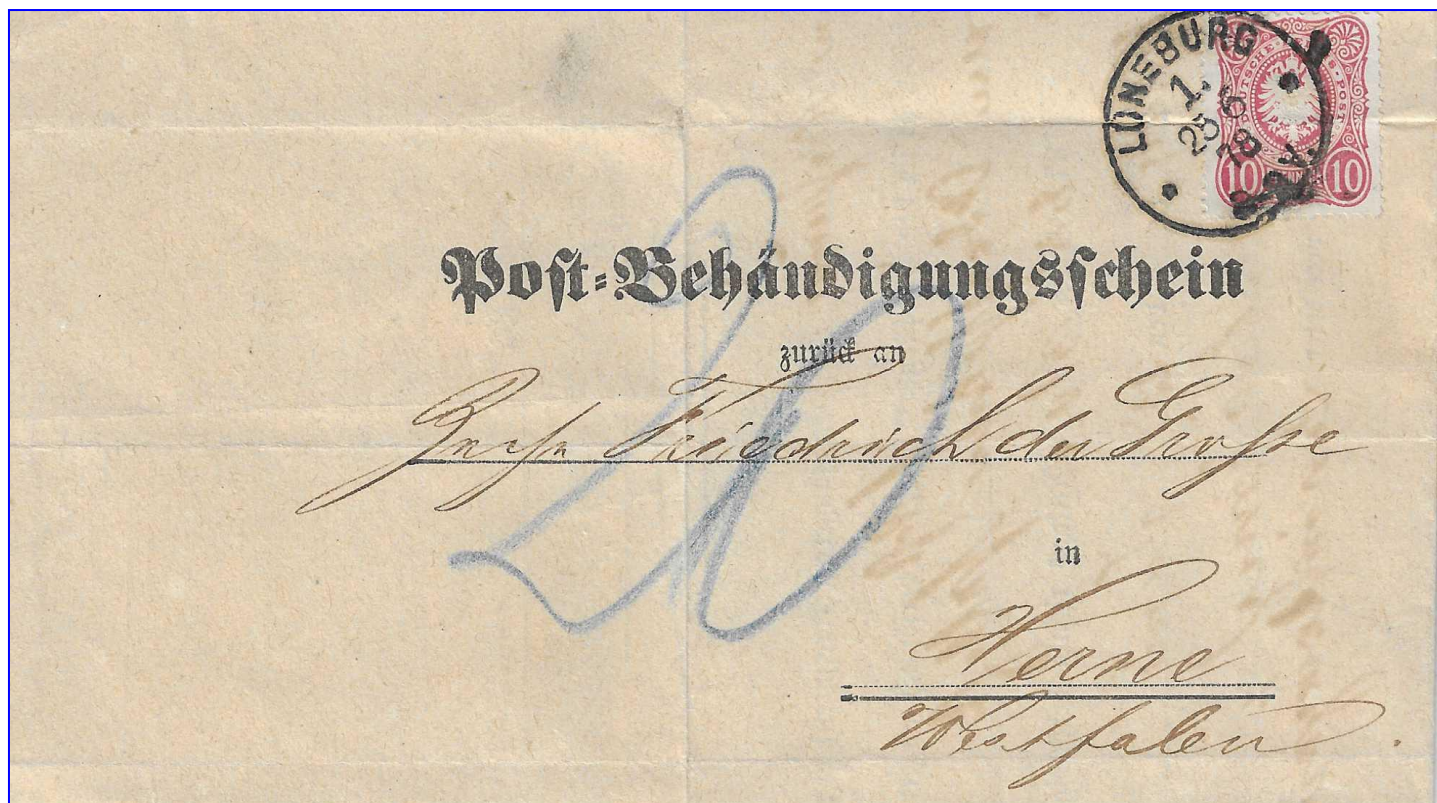 LÜNEBURG
1.
25 6
78
DEUTSCHE REICHS-POST
10 10
Post-Behändigungsschein
zurück an
Zeche Friedrich der Große
20
in
Herne
Westfalen.